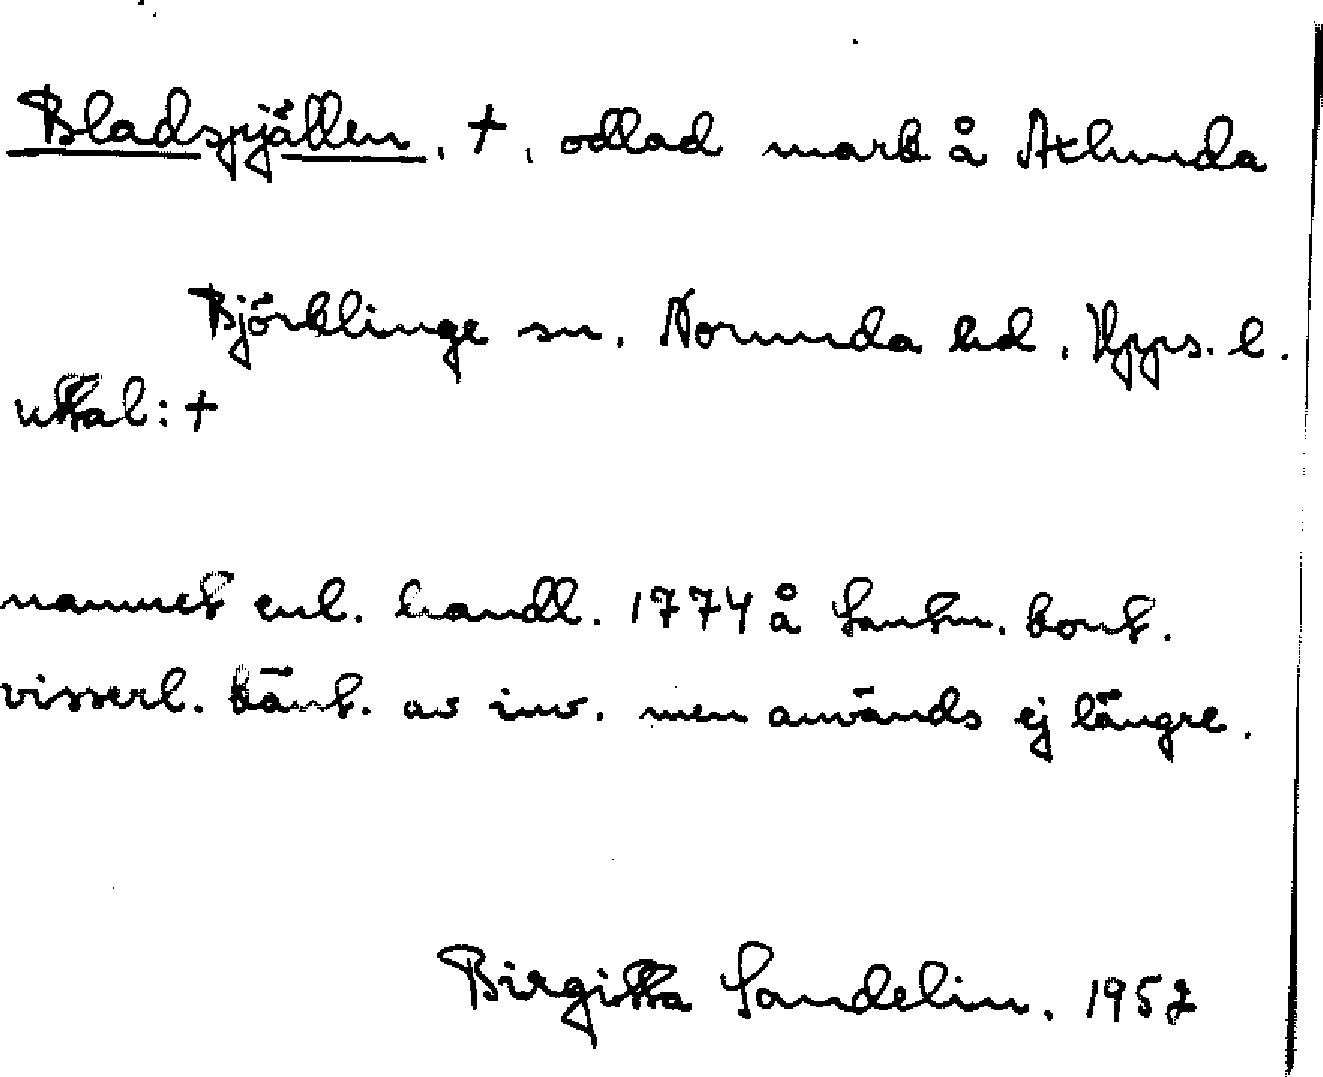 Bladspjällen, +, odlad mark å Axlunda
Björklinge sn, Norunda hd, Upps. l.
uttal: +
namnet enl. handl. 1774 å Lantm. kont.
visserl. känt. av inv. men används ej längre.
Birgitta Sandelin. 1952